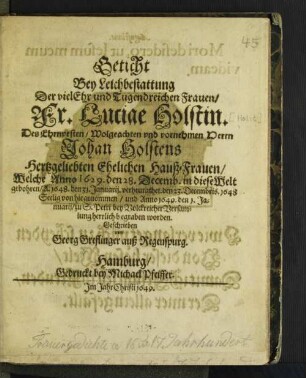 45
Geticht
Bey Leichbestattung
Der viel Ehr und Tugendreichen Frauen/
Fr. Luciae Holstin.
Des Ehrnvesten/ Wolgeachten und vornehmen Herrn
Johan Holstens
Hertzgeliebten Ehelichen Hauß-Frauen/
Welche Anno 1629. den 28. Decemb. in diese Welt
gebohren/ A. 1648. den 31. Januarij, verheurathet, den 27. Decembris, 1648
Seelig von hie genommen/ und Anno 1649. den 3. Ja-
nuarij zu S. Petri bey Volckreicher Versam-
lung herrlich begraben worden.
Geschrieben
von
Georg Greflinger auß Regenspurg.
Hamburg/
Gedruckt bey Michael Pfeiffer.
Im Jahr Christi 1649.
Trauergedichte